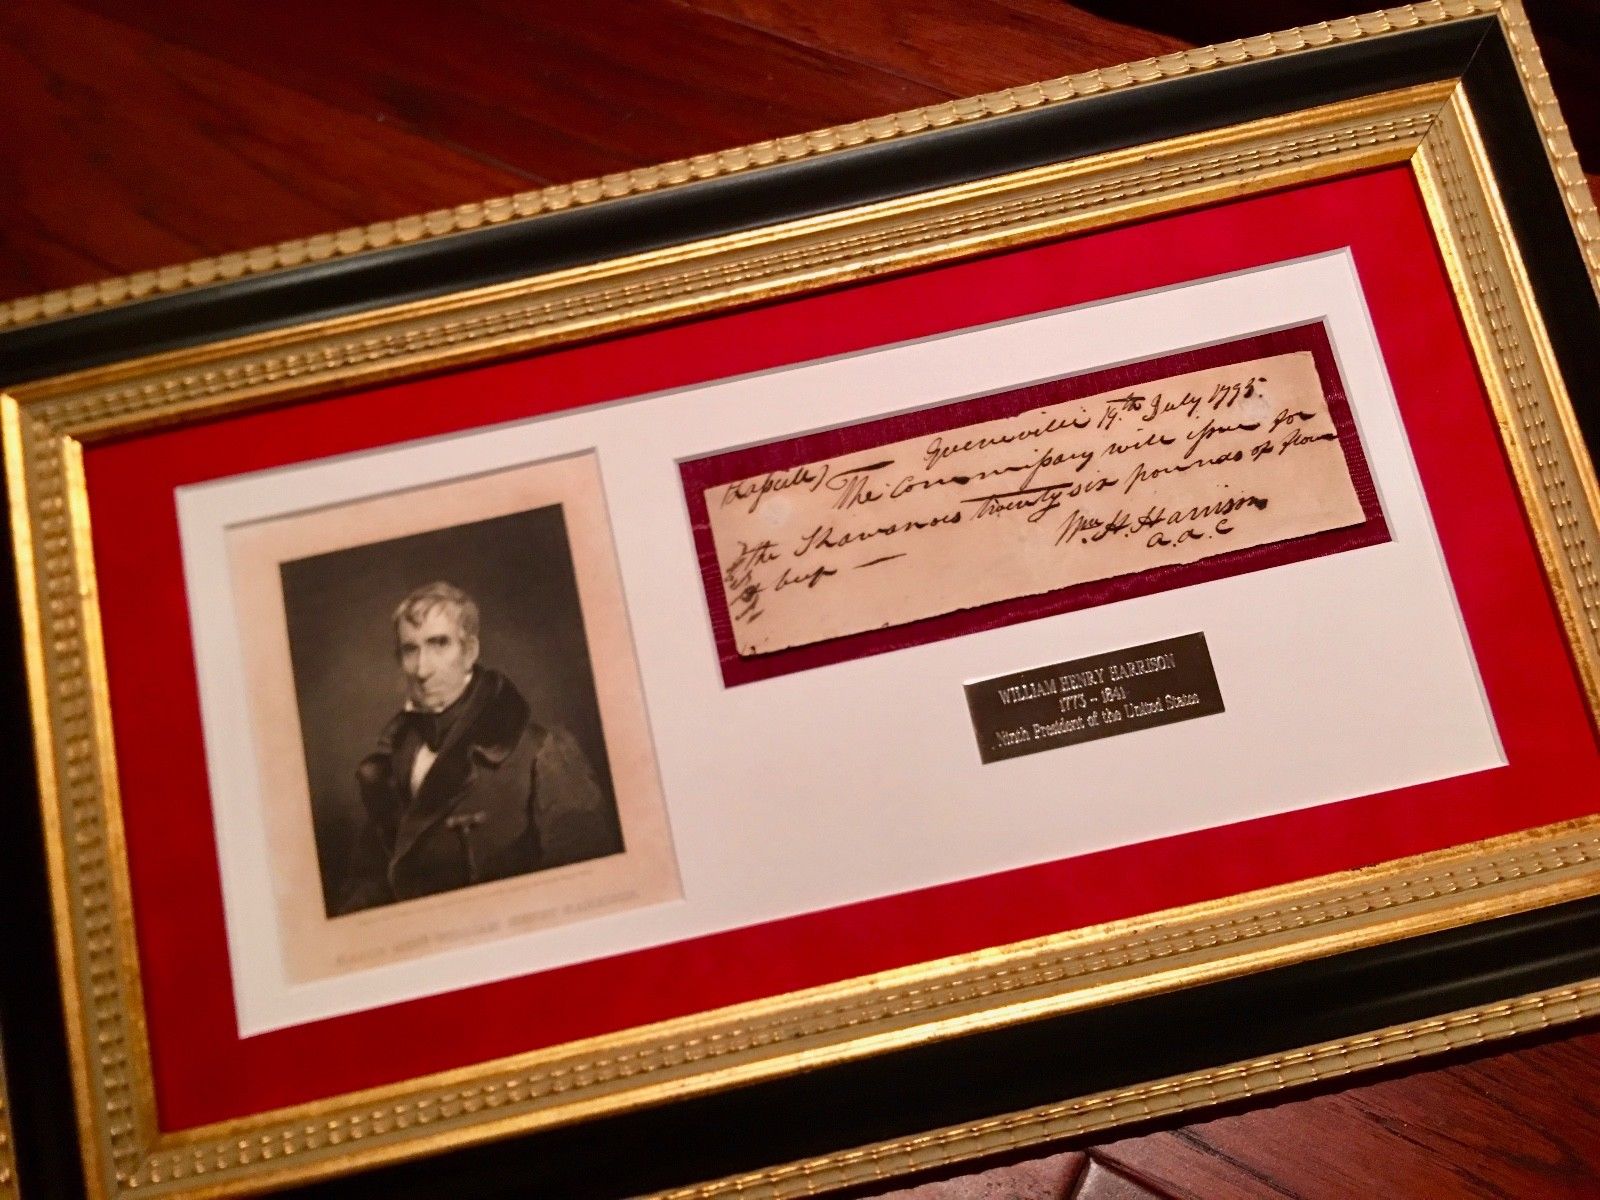 Greeneville 19th July 1795.
The Commissary will issue for
the Shawanoes twenty six pounds of flour
beef —
Wm. H. Harrison
a. a. c
WILLIAM HENRY HARRISON
1773 - 1841
Ninth President of the United States